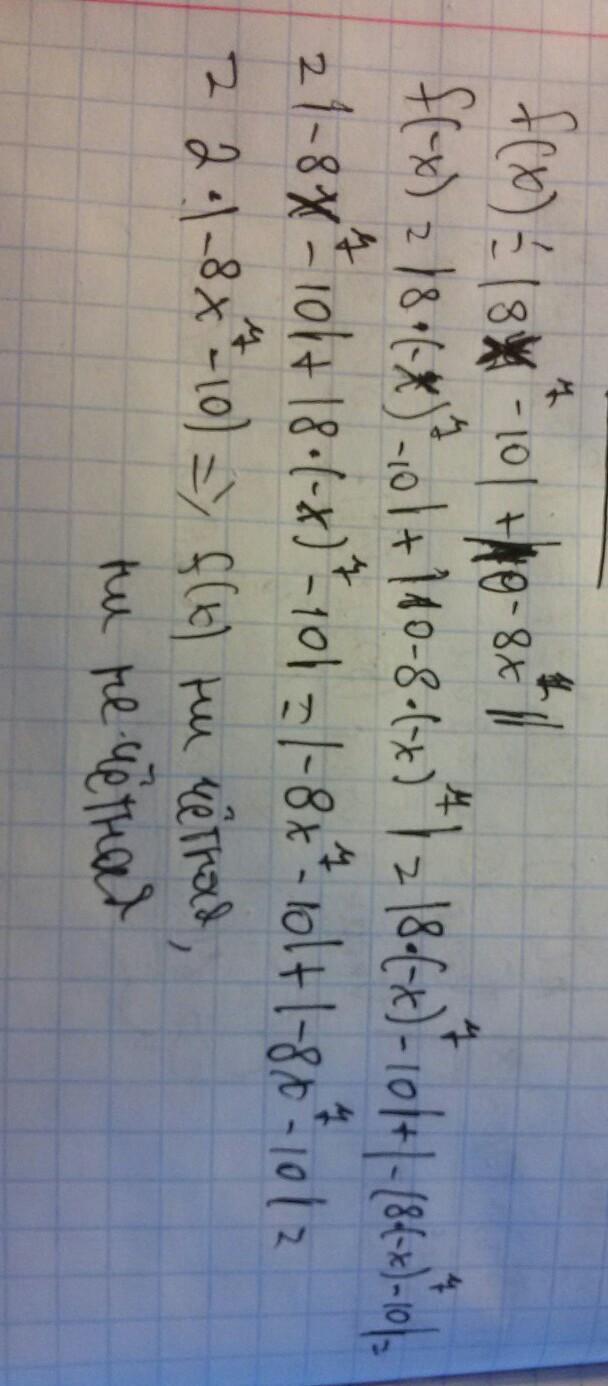 f(x) = |8x⁷ - 10| + |10 - 8x⁷|
f(-x) = |8·(-x)⁷ - 10| + |10 - 8·(-x)⁷| = |8·(-x)⁷ - 10| + |-(8·(-x)⁷ - 10| =
= |-8x⁷ - 10| + |8·(-x)⁷ - 10| = |-8x⁷ - 10| + |-8x⁷ - 10| =
= 2·|-8x⁷ - 10| => f(x) ни чётная,
ни не чётная